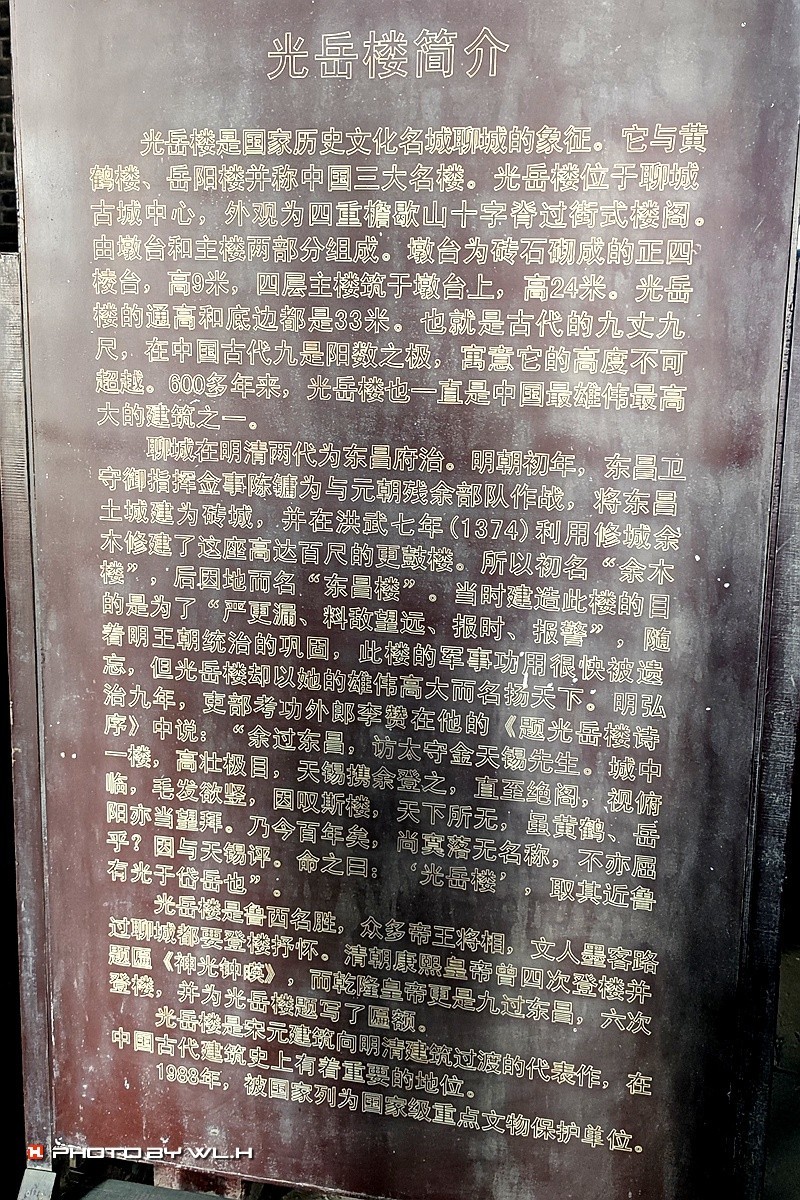 光岳楼简介
光岳楼是国家历史文化名城聊城的象征。它与黄
鹤楼、岳阳楼并称中国三大名楼。光岳楼位于聊城
古城中心，外观为四重檐歇山十字脊过街式楼阁。
由墩台和主楼两部分组成。墩台为砖石砌成的正四
棱台，高9米，四层主楼筑于墩台上，高24米。光岳
楼的通高和底边都是33米。也就是古代的九丈九
尺，在中国古代九是阳数之极，寓意它的高度不可
超越。600多年来，光岳楼也一直是中国最雄伟最高
大的建筑之一。
聊城在明清两代为东昌府治。明朝初年，东昌卫
守御指挥佥事陈镛为与元朝残余部队作战，将东昌
土城建为砖城，并在洪武七年(1374)利用修城余
木修建了这座高达百尺的更鼓楼。所以初名“余木
楼”，后因地而名“东昌楼”。当时建造此楼的目
的是为了“严更漏、料敌望远、报时、报警”，随
着明王朝统治的巩固，此楼的军事功用很快被遗
忘，但光岳楼却以她的雄伟高大而名扬天下。明弘
治九年，吏部考功外郎李赞在他的《题光岳楼诗
序》中说：“余过东昌，访太守金天锡先生。城中
一楼，高壮极目，天锡携余登之，直至绝阁，视俯
临，毛发欲竖，因叹斯楼，天下所无，虽黄鹤、岳
阳亦当望拜。乃今百年矣，尚寞落无名称，不亦屈
乎？因与天锡评。命之曰：‘光岳楼’，取其近鲁
有光于岱岳也”。
光岳楼是鲁西名胜，众多帝王将相，文人墨客路
过聊城都要登楼抒怀。清朝康熙皇帝曾四次登楼并
题匾《神光钟暎》，而乾隆皇帝更是九过东昌，六次
登楼，并为光岳楼题写了匾额。
光岳楼是宋元建筑向明清建筑过渡的代表作，在
中国古代建筑史上有着重要的地位。
1988年，被国家列为国家级重点文物保护单位。
PHOTO BY WL.H